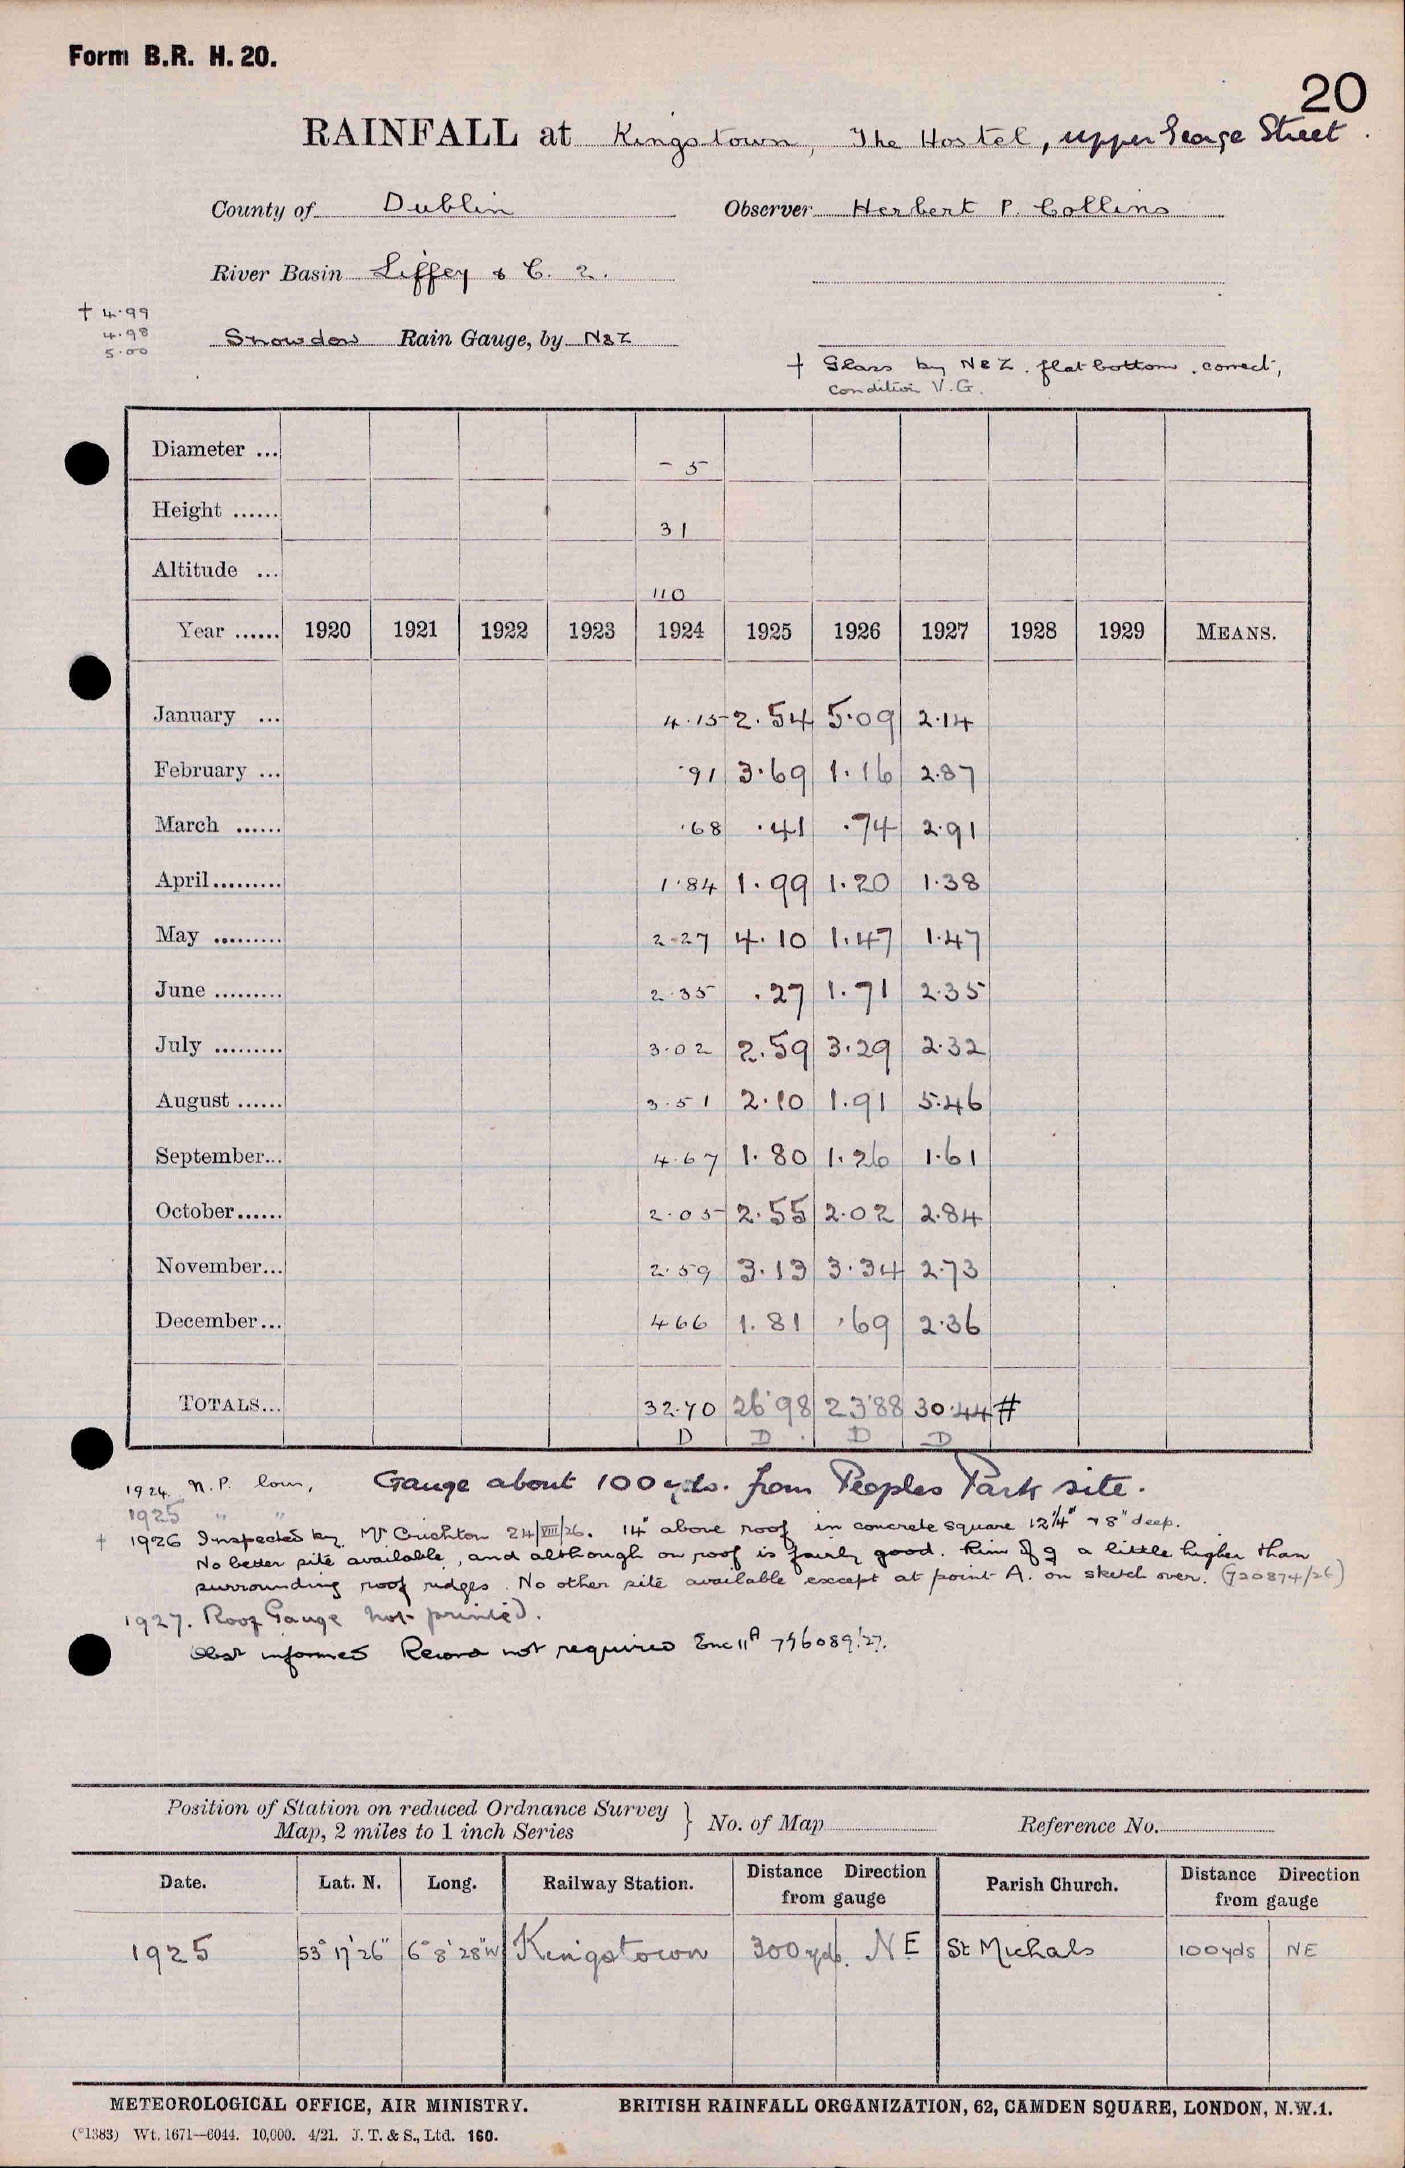 Form B.R. H. 20.
20
RAINFALL at Kingstown, The Hostel, Upper George Street.
County of Dublin Observer Herbert P. Collins
River Basin Liffey & C. 2.
† 4.99
4.98
5.00
Snowdon Rain Gauge, by N&Z
† Glass by N&Z. flat bottom. correct,
condition V.G.
Diameter ... – 5
Height ...... 31
Altitude ... 110
Year ...... 1920 1921 1922 1923 1924 1925 1926 1927 1928 1929 MEANS.
January ... 4.15 2.54 5.09 2.14
February ... .91 3.69 1.16 2.87
March ...... .68 .41 .74 2.91
April......... 1.84 1.99 1.20 1.38
May ......... 2.27 4.10 1.47 1.47
June ......... 2.35 .27 1.71 2.35
July ......... 3.02 2.59 3.29 2.32
August ...... 3.51 2.10 1.91 5.46
September... 4.67 1.80 1.26 1.61
October...... 2.05 2.55 2.02 2.84
November... 2.59 3.13 3.34 2.73
December... 4 66 1.81 .69 2.36
TOTALS... 32.70 26.98 23.88 30.44 #
D D D D
1924 N.P. loan, Gauge about 100 yds. from Peoples Park site.
1925 " "
† 1926 Inspected by Mr Crichton 24/VIII/26. 14" above roof in concrete square 12¼" × 8" deep.
No better site available, and although on roof is fairly good. Rim of g a little higher than
surrounding roof ridges. No other site available except at point A. on sketch over. (720874/26)
1927. Roof Gauge not printed.
Obsr informed Record not required Enc 11A 746089/27.
Position of Station on reduced Ordnance Survey
Map, 2 miles to 1 inch Series } No. of Map Reference No.
Date. Lat. N. Long. Railway Station. Distance Direction from gauge Parish Church. Distance Direction from gauge
1925 53° 17' 26" 6° 8' 28" W Kingstown 300 yds. NE St Michals 100 yds NE
METEOROLOGICAL OFFICE, AIR MINISTRY. BRITISH RAINFALL ORGANIZATION, 62, CAMDEN SQUARE, LONDON, N.W.1.
(°1383) Wt. 1671—6044. 10,000. 4/21. J. T. & S., Ltd. 160.